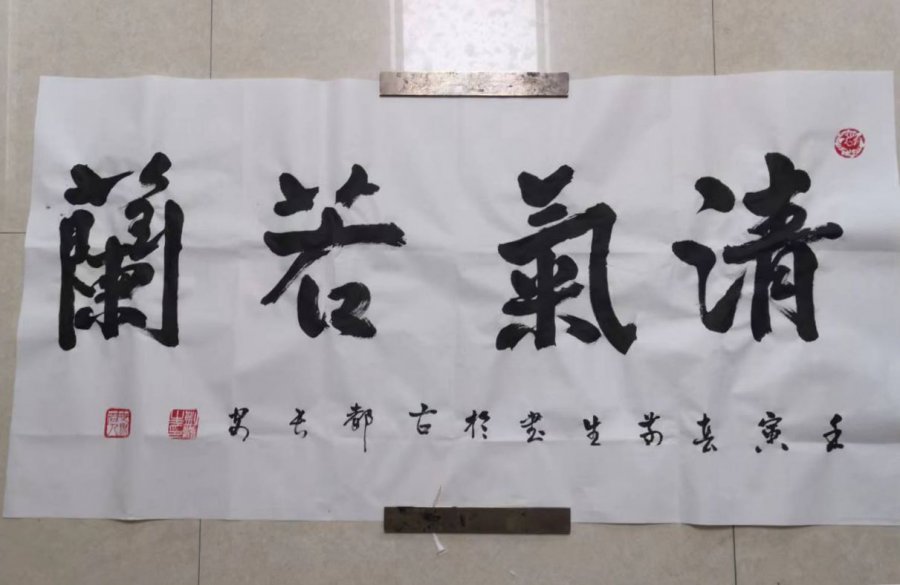 清氣若蘭
壬寅春 生書於古都长安